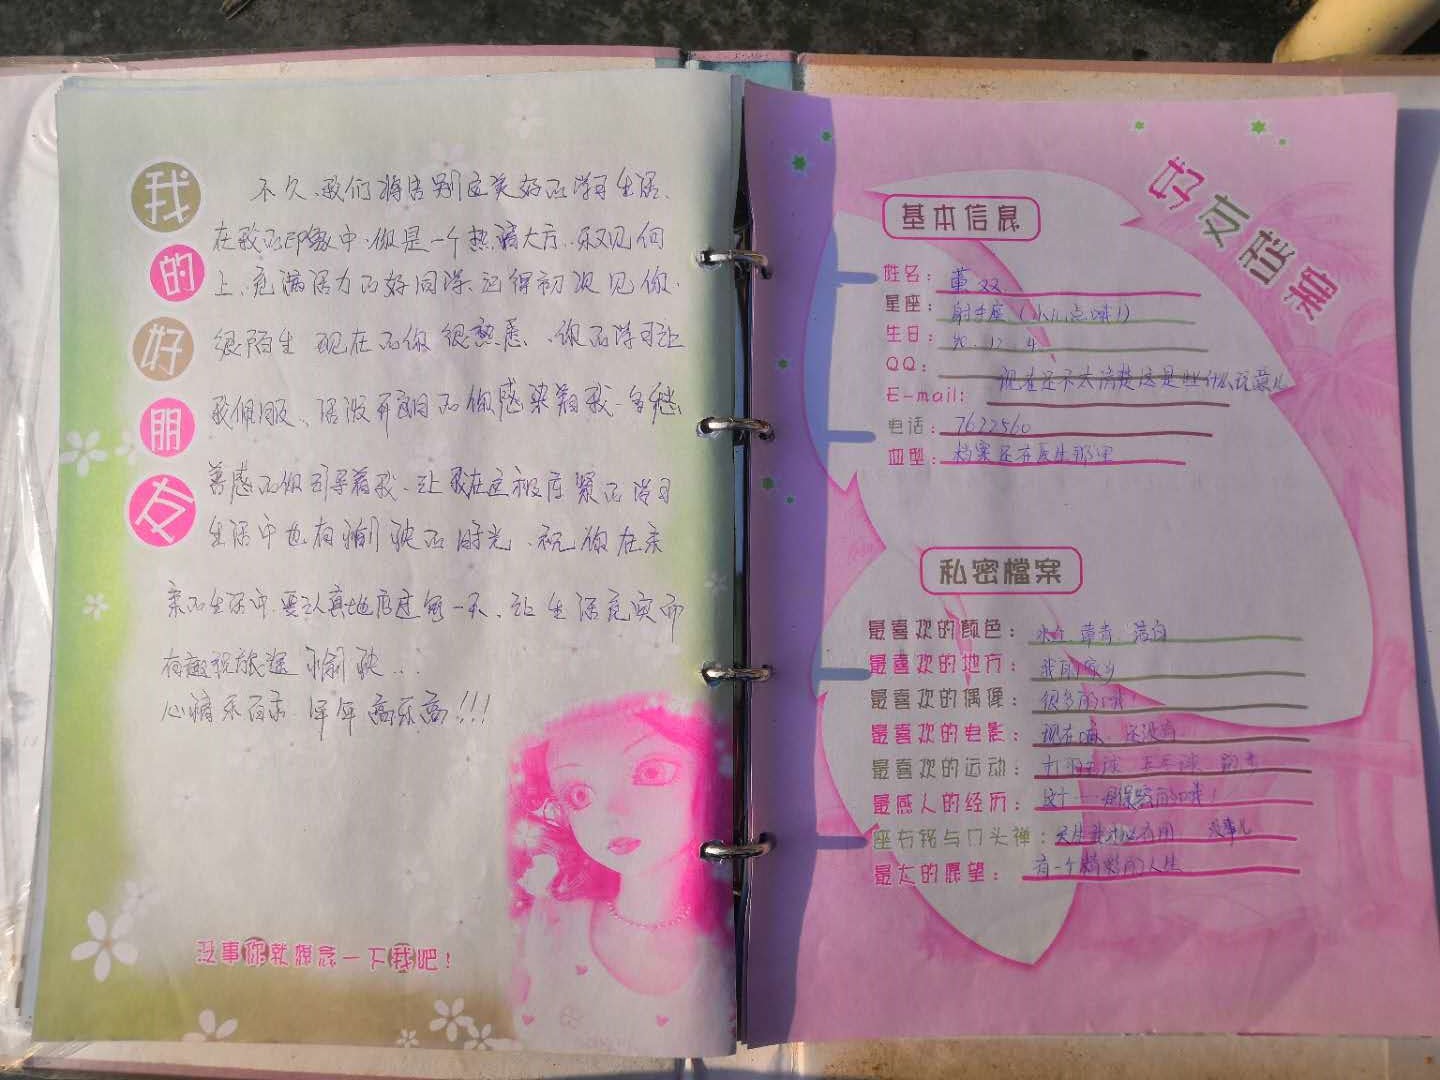 我的好朋友
不久、我们将告别这美好的学习生活、
在我的印象中、你是一个热情大方、积极向
上、充满活力的好同学、记得初次见你、
很陌生 现在的你很熟悉、你的学习让
我佩服、活泼开朗的你感染着我、多愁
善感的你引导着我、让我在这极度紧的学习
生活中也有愉快的时光、祝你在未
来的生活中、要认真地度过每一天、让生活充实而
有趣祝旅途愉快...
心情乐百事、年年高乐高!!!
没事你就想念一下我吧!
好友档案
基本信息
姓名: 董双
星座: 射手座(小儿点哦!)
生日: 90.12.4
QQ:
E-mail: 现在还不太清楚这是些什么玩意儿
电话: 7622560
血型: 档案还在医生那里
私密檔案
最喜欢的颜色: 草青 洁白
最喜欢的地方: 我的家乡
最喜欢的偶像: 很多的哦!
最喜欢的电影: 现在嘛、还没有
最喜欢的运动: 打羽毛球 乒乓球
最感人的经历: 这个——是保密的哦!
座右铭与门头禅: 天生我才必有用 没事儿
最大的愿望: 有一个精彩的人生